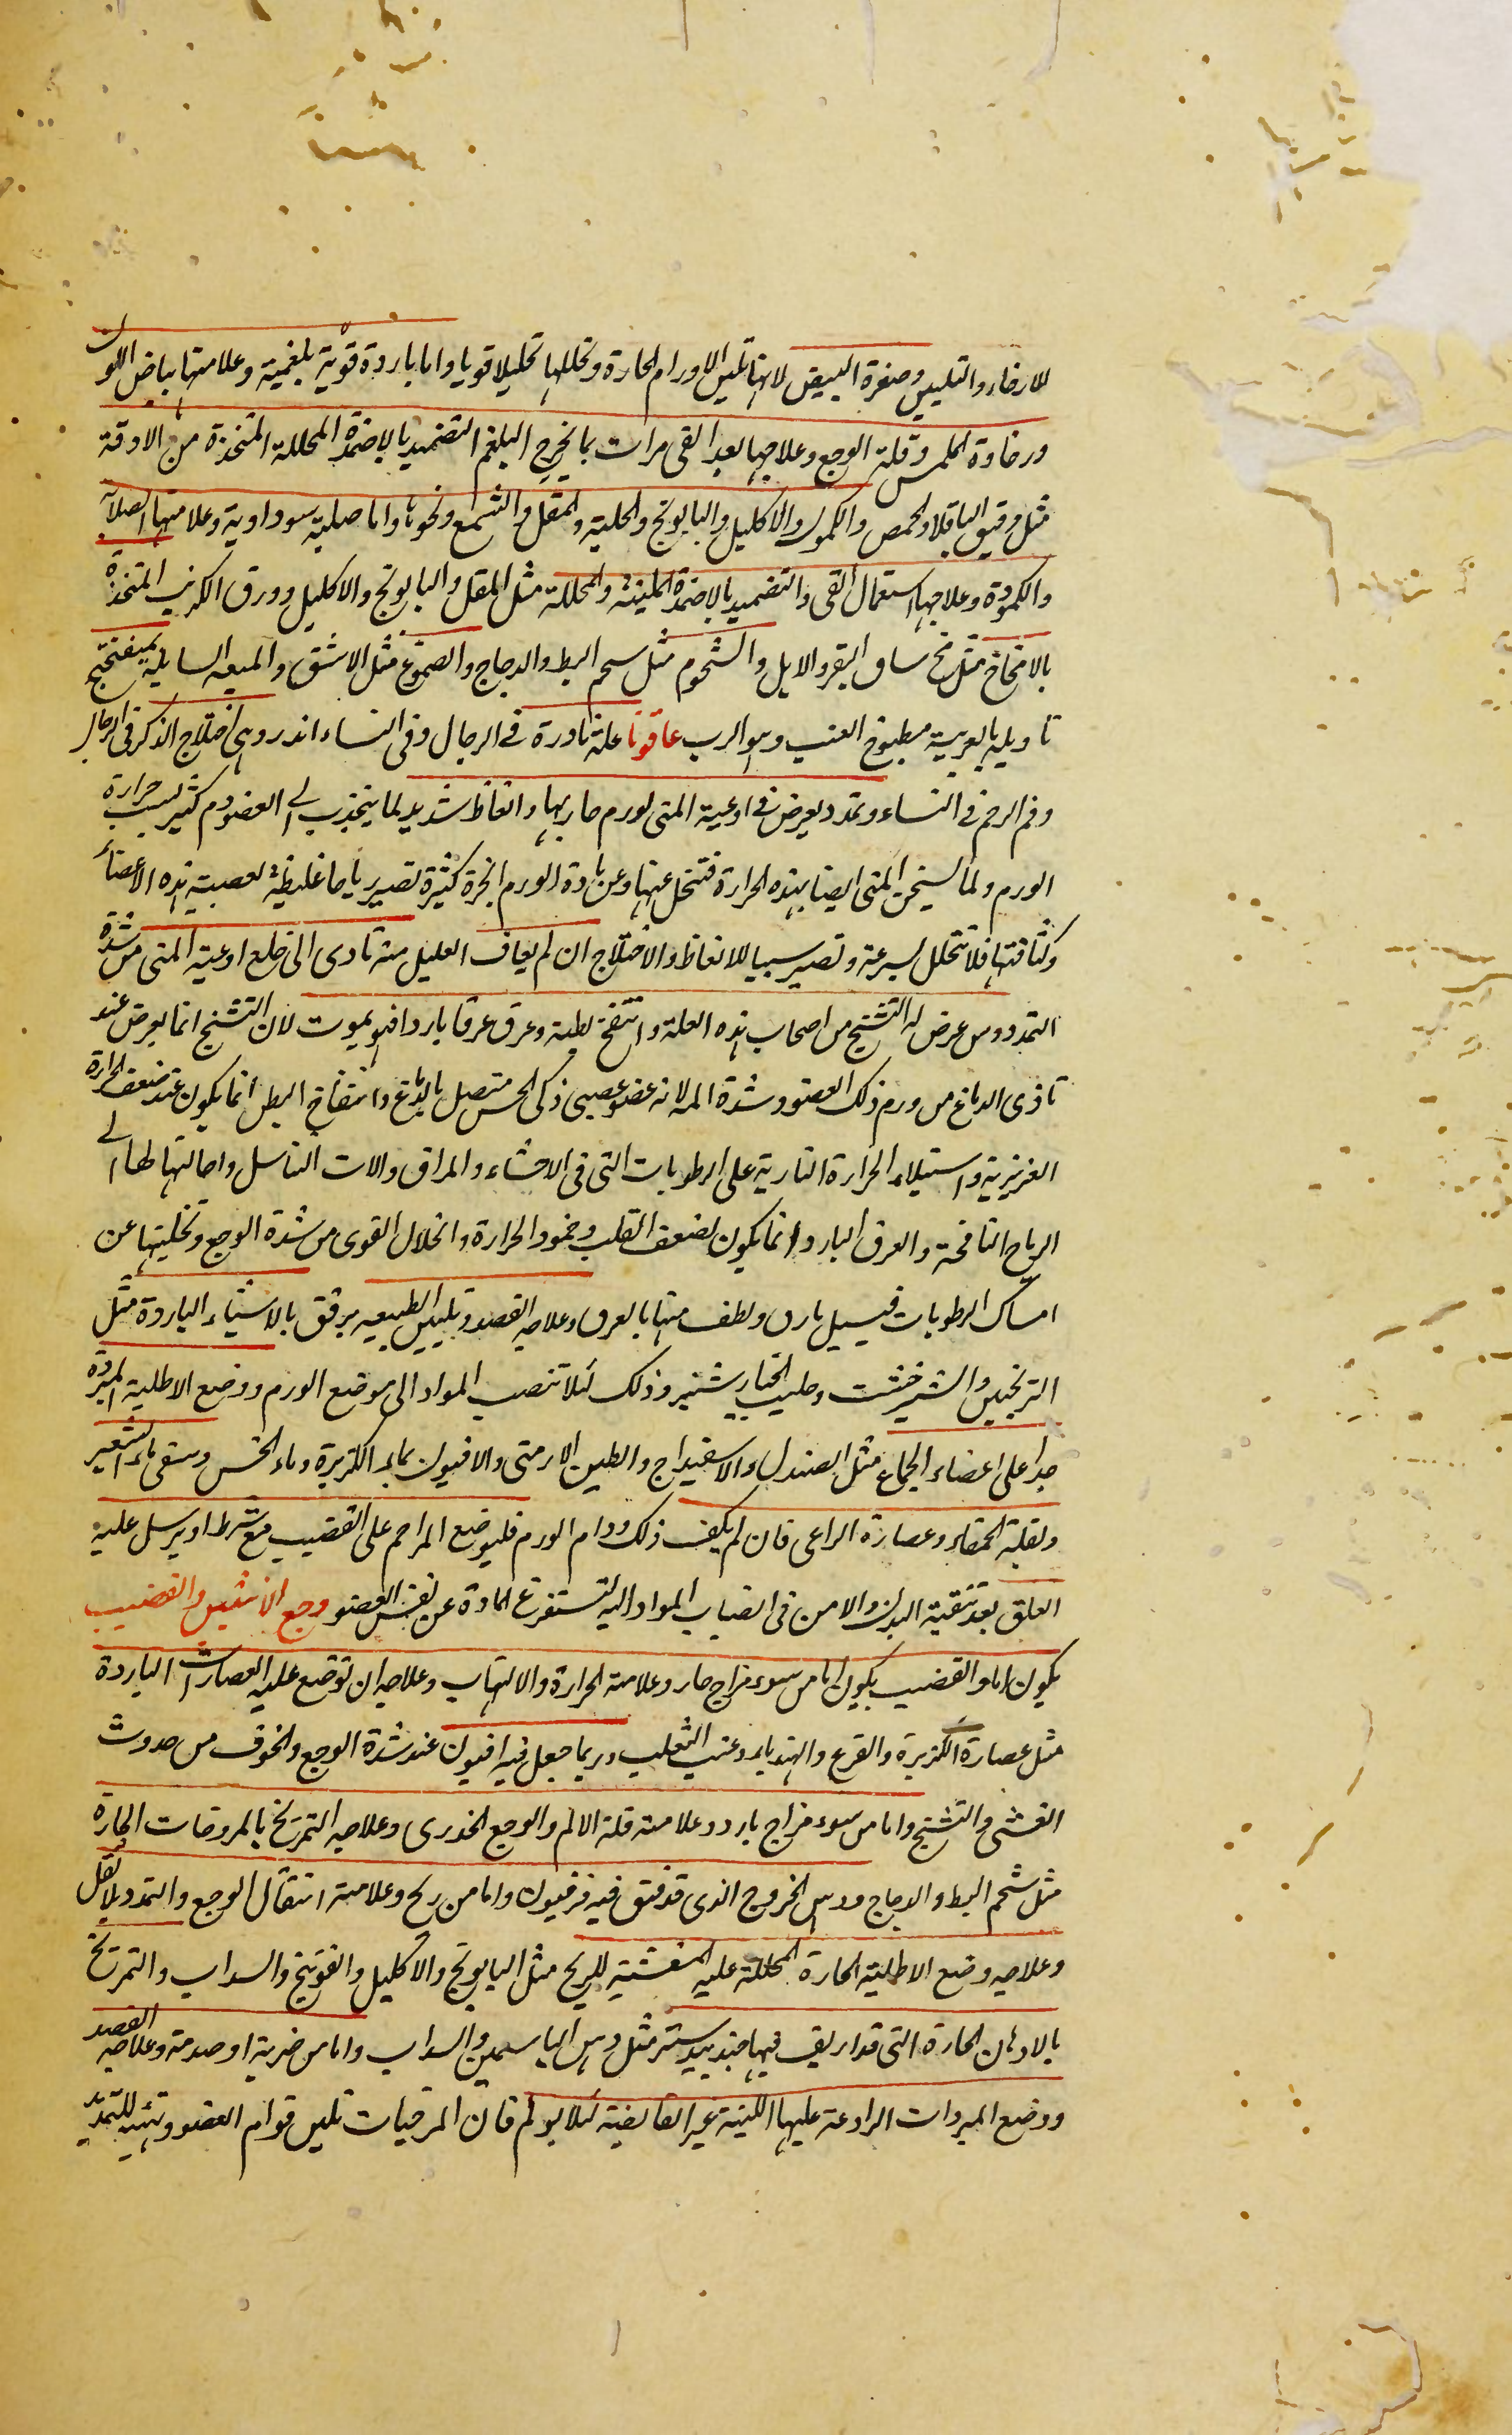 للارخاء والتليين وصفرة البيض لانها تلين الاورام الحارة وتحللها تحليلا قويا واما باردة قوية بلغمية وعلامتها بياض اللون
ورخاوة الملمس وقلة الوجع وعلاجها بعد القى مرات بما يخرج البلغم التضميد بالاضمدة المحللة المتخذة من الادقة
مثل دقيق الباقلا والحمص والكمون والاكليل والبابونج والحلبة والمقل والشمع ونحوها واما صلبة سوداوية وعلامتها الصلابة
والكمودة وعلاجها استعمال القى والتضميد بالاضمدة الملينة والمحللة مثل المقل والبابونج والاكليل وورق الكرنب المتخذة
بالامخاخ مثل مخ ساق البقر والايل والشحوم مثل سحم البط والدجاج والصموغ مثل الاشق والميعه السايلة بميفختج
تاويله بالعربية مطبوخ العنب وهو الرب عاقونا علة نادرة فى الرجال وفى النساء اندر وهى اختلاج الذكر فى الرجال
وفم الرحم فى النساء وتمدد يعرض فى اوعية المنى لورم حار بها وانعاظ شديد لما ينجذب الى العضو دم كثير بسبب حرارة
الورم ولما يسخن المنى ايضا بهذه الحرارة فتنحل عنها وعن مادة الورم ابخرة كثيرة تصير رياحا غليظة لعصبية هذه الاعضاء
وكثافتها فلا تتحلل بسرعة وتصير سببا للانعاظ والاختلاج ان لم يعاف العليل منه تادى الى خلع اوعية المنى من شدة
التمدد ومن عرض له التشنج من اصحاب هذه العلة وانتفخ بطنه وعرق عرقا باردا فهو يموت لان التشنج انما يعرض عند
تاذى الدماغ من ورم ذلك العضو وشدة المه لانه عضو عصبى ذكى الحس متصل بالدماغ وانتفاخ البطن انما يكون عند ضعف الحرارة
الغريزية واستيلاء الحرارة النارية على الرطوبات التى فى الاحشاء والمراق والات التناسل واحالتها لها الى
الرياح النافخة والعرق البارد انما يكون لضعف القلب وخمود الحرارة وانحلال القوى من شدة الوجع وتخليتها عن
امساك الرطوبات فيسيل مارق ولطف منها بالعرق وعلاجه الفصد وتليين الطبيعه برفق بالاشياء الباردة مثل
الترنجبين والشيرخشت وحليب الخيارشنبر وذلك لئلا تنصب المواد الى موضع الورم ووضع الاطلية المبردة
جدا على اعضاء الجماع مثل الصندل والاسفيداج والطين الارمنى والافيون بماء الكزبرة وماء الخس وسقى ماء الشعير
وبقلة الحمقاء وعصارة الراعى فان لم يكف ذلك ودام الورم فليوضع المراحم على القضيب مع شرط او يرسل عليه
العلق بعد تنقية البدن والامن فى انصباب المواد اليه لتستفرغ المادة عن نفس العضو وجع الانثيين والقضيب
يكون اما والقضيب يكون اما من سوء مزاج حار وعلامته الحرارة والالتهاب وعلاجه ان توضع عليه العصارات الباردة
مثل عصارة الكزبرة والقرع والهندباء وعنب الثعلب وربما جعل فيه افيون عند شدة الوجع والخوف من حدوث
الغشى والتشنج واما من سوء مزاج بارد وعلامته قلة الالم والوجع الخدرى وعلاجه التمريخ بالمروخات الحارة
مثل شحم البط والدجاج ودهن الخروع الذى قد فتق فيه فرفيون واما من ريح وعلامته انتقال الوجع والتمدد بلا ثقل
وعلاجه وضع الاطلية الحارة المحللة عليه المفشية للريح مثل البابونج والاكليل والفوتنج والسداب والتمريخ
بالادهان الحارة التى قد اريف فيها جندبيدستر مثل دهن الياسمين والسداب واما من ضربة او صدمة وعلاجه الفصد
ووضع المبردات الرادعة عليها اللينة غير القابضة لئلا يولم فان المرخيات تلين قوام العضو وتهيئه للتمديد